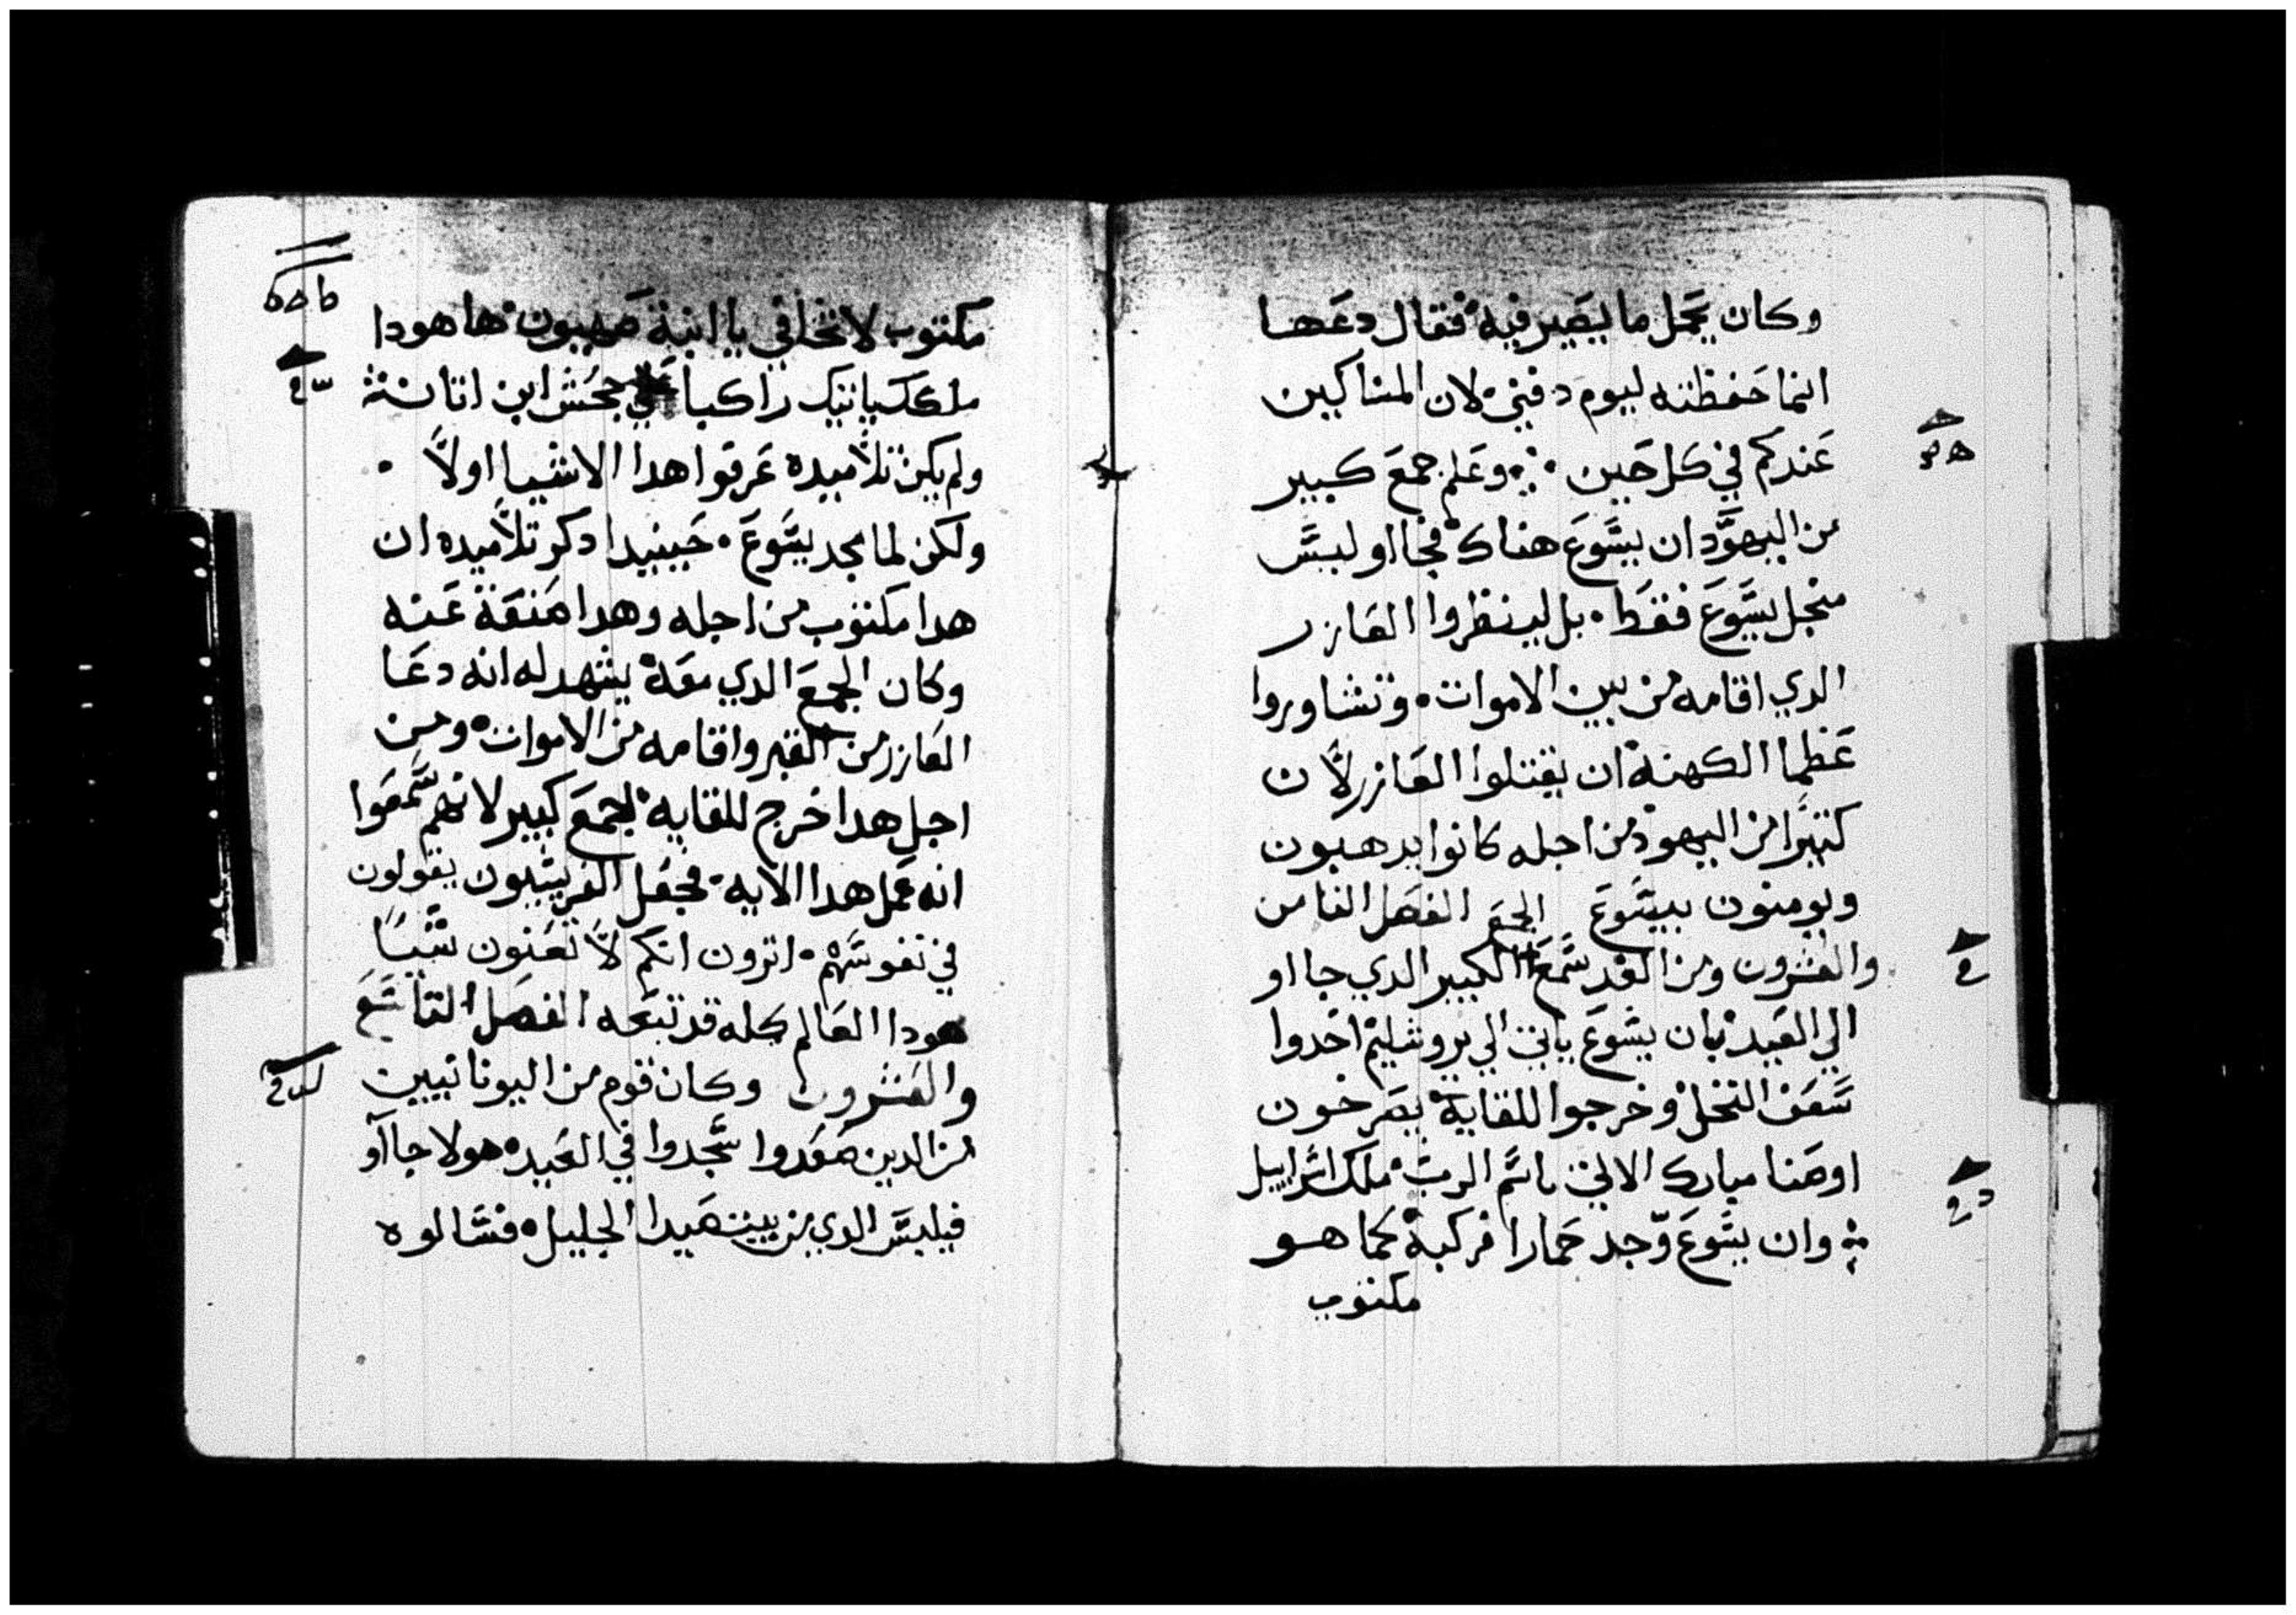 وكان يحمل ما يصير فيه فقال دعها
انما حفظته ليوم دفني لان المساكين
عندكم في كل حين وعلم جمع كبير
من اليهود ان يسوع هناك فجااو ليس
منجل يسوع فقط بل لينظروا العازر
الدي اقامه من بين الاموات وتشاوروا
عظما الكهنة ان يقتلوا العازر لان
كتيرا من اليهود من اجله كانوا يدهبون
ويومنون بيسوع الفصل الثامن
والعشرون ومن الغد سمع الجمع الكبير الدي جااو
الي العيد بان يسوع ياتي الي يروشليم اخدوا
سعف النخل وخرجوا للقايه يصرخون
اوصنا مبارك الاتي باسم الرب ملك اسراييل
وان يسوع وجد حمارا فركبه كما هو
مكتوب
مكتوب لا تخافي يا ابنة صهيون ها هودا
ملكك ياتيك راكبا علي جحش ابن اتان
ولم يكن تلاميده عرفوا هدا الاشيا اولا
ولكن لما مجد يسوع حينيدا دكر تلاميده ان
هدا مكتوب من اجله وهدا صنعة عنه
وكان الجمع الدي معه يشهد له انه دعا
العازر من القبر واقامه من الاموات ومن
اجل هدا خرج للقايه الجمع كبير لانهم سمعوا
انه عمل هدا الايه فجعل الفريسيون يقولون
في نفوسهم اترون انكم لا تعنون شيا
هودا العالم كله قد تبعه الفصل التاسع
والعشرون وكان قوم من اليونانيين
من الدين صعدوا سجدوا في العيد هولا جااو
فيلبس الدي من بيت صيدا الجليل فسالوه